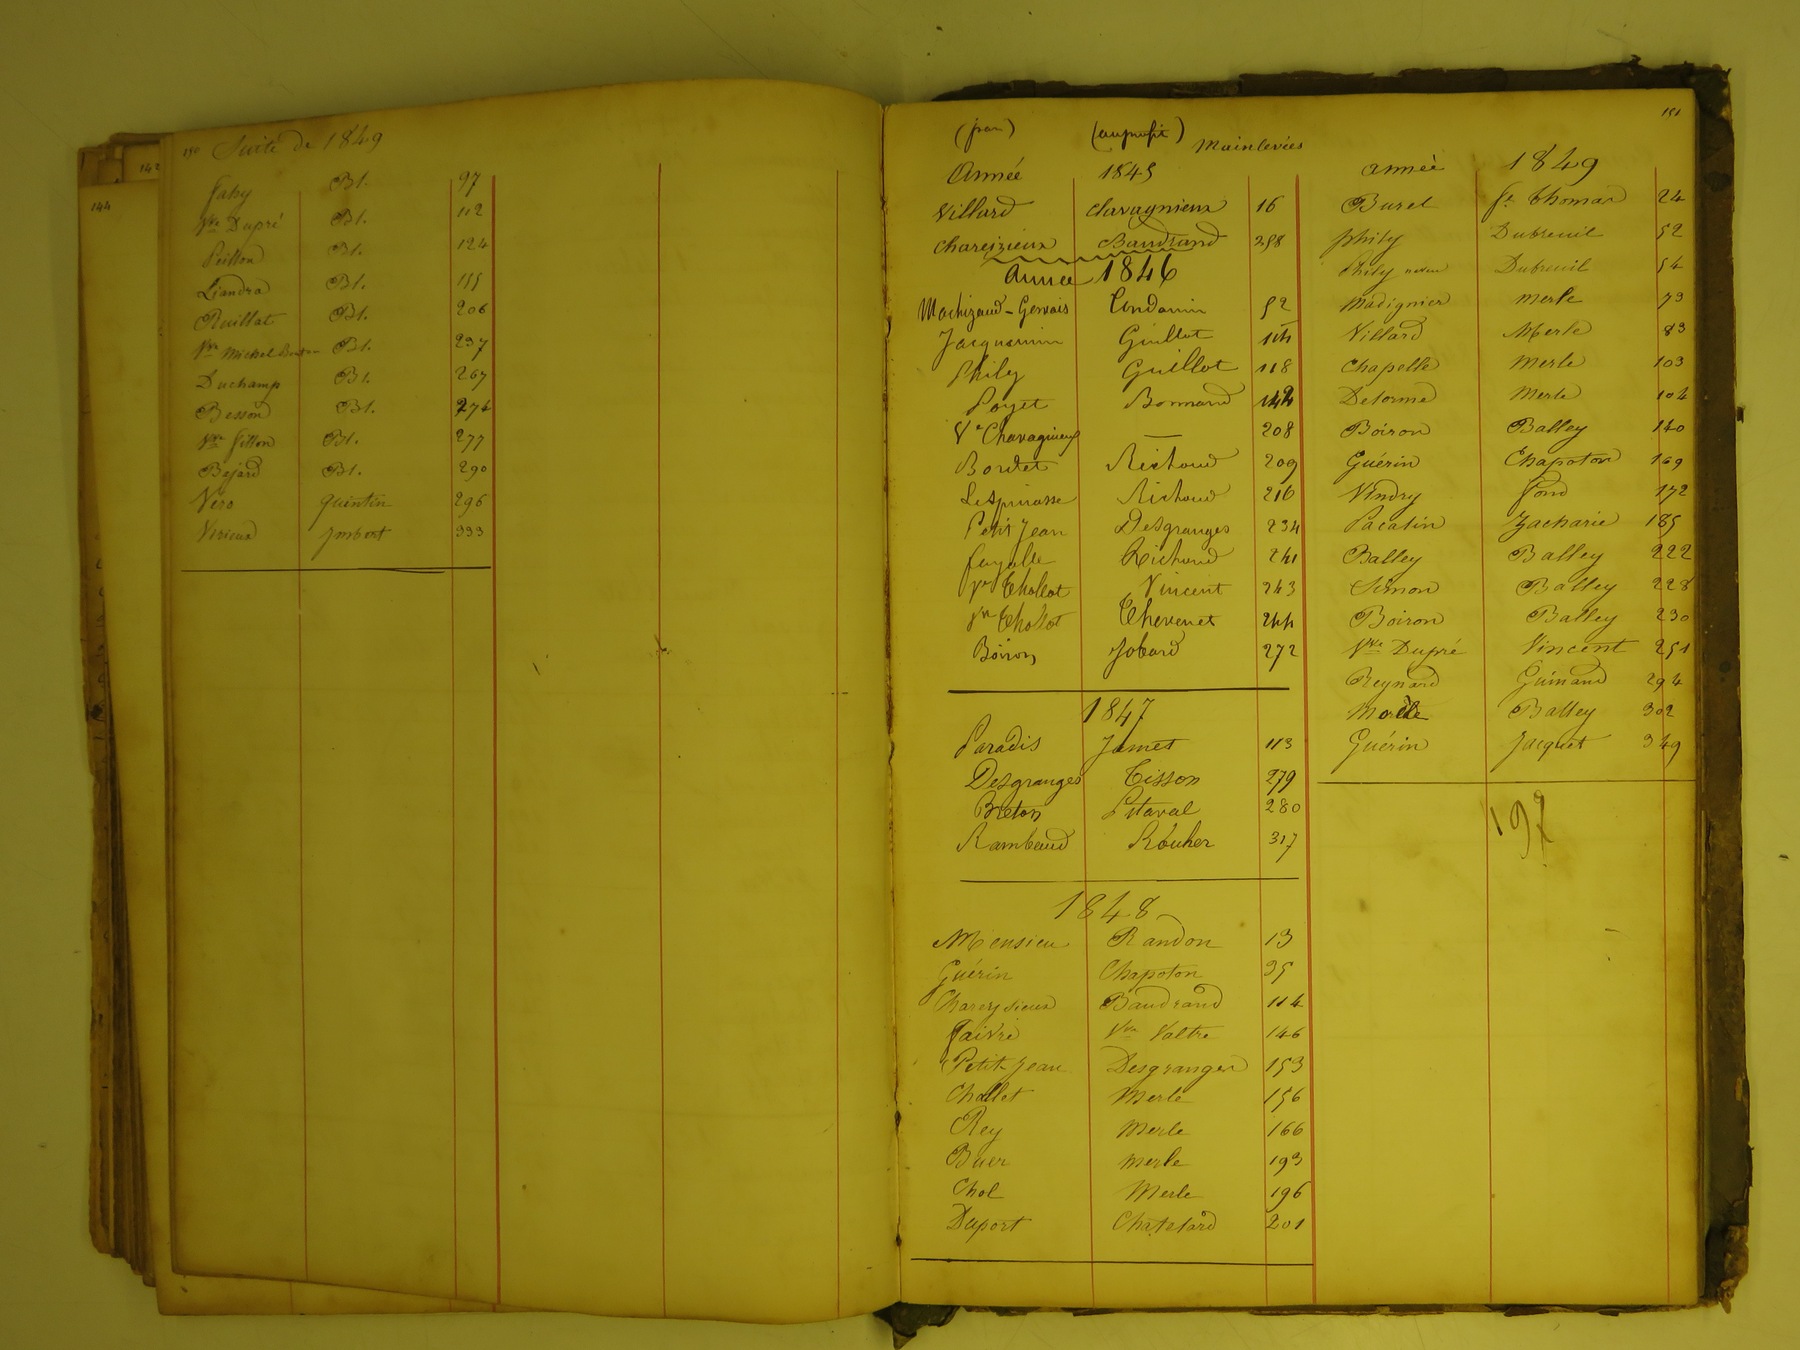 142
144
150 Suite de 1849
Fahy Bt. 97
Vve Dupré Bt. 112
Peillon Bt. 124
Liandra Bt. 155
Ruillat Bt. 206
Vve Michel Bt. 237
Duchamp Bt. 267
Besson Bt. 274
Vve Fillon Bt. 277
Bejard Bt. 290
Véro Quentin 296
Virieux Jmbert 333
151
(par) (au profit) Mainlevées
Année 1845
Villard Chavagnieux 16
Chareizieux Baudrand 258
Année 1846
Machizaud-Gervais Undanin 52
Jacquemin Guillot
Phily Guillot 118
Poyet Bonnand 142
Ve Chavagnieux — 208
Bordet Richoud 209
Lespinasse Richoud 216
Petit Jean Desgranges 234
Fayolle Richoud 241
Ve Chollot Vincent 243
Vve Cholot Thevenet 244
Boiron Jobard 272
1847
Paradis Jamet 113
Desgranges Tisson 279
Breton Pitaval 280
Rambaud Rouher 317
1848
Mensieu Randon 13
Guérin Chapoton 35
Charezieux Baudrand 114
Faivre Vve Valtre 146
Petit-Jean Desgranges 153
Chollet Merle 156
Rey Merle 166
Buer Merle 193
Chol Merle 196
Duport Chatelard 201
année 1849
Burel St Thomas 24
Phily Dubreuil 52
Phily neveu Dubreuil 54
Madignier Merle 73
Villard Merle 83
Chapelle Merle 103
Delorme Merle 104
Boiron Balley 140
Guérin Chapoton 169
Vindry Fond 172
Pacalin Zacharie 185
Balley Balley 222
Simon Balley 228
Boiron Balley 230
Vve Dupré Vincent 251
Reynard Guinand 294
Balley 302
Guérin Jacquet 349
197